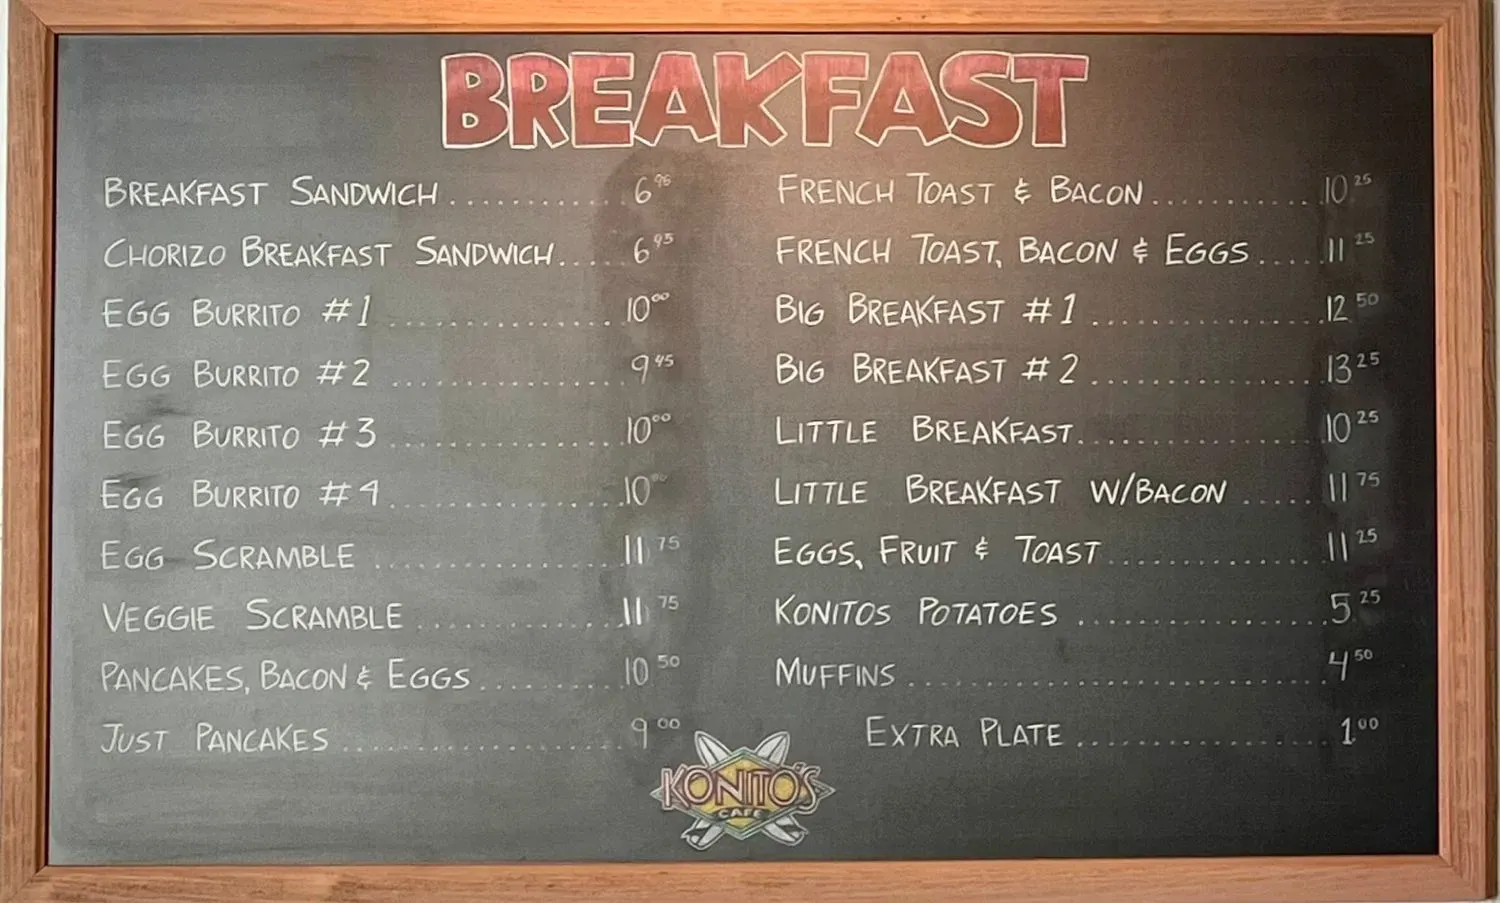 BREAKFAST
BREAKFAST SANDWICH ............ 6 95
CHORIZO BREAKFAST SANDWICH..... 6 95
EGG BURRITO #1 ................ 10 00
EGG BURRITO #2 ................ 9 45
EGG BURRITO #3 ................ 10 00
EGG BURRITO #4 ................ 10 00
EGG SCRAMBLE ................ 11 75
VEGGIE SCRAMBLE .............. 11 75
PANCAKES, BACON & EGGS ......... 10 50
JUST PANCAKES ................. 9 00
FRENCH TOAST & BACON ........... 10 25
FRENCH TOAST, BACON & EGGS ..... 11 25
BIG BREAKFAST #1 ............... 12 50
BIG BREAKFAST #2 ............... 13 25
LITTLE BREAKFAST................ 10 25
LITTLE BREAKFAST W/BACON ...... 11 75
EGGS, FRUIT & TOAST ............ 11 25
KONITOS POTATOES ............... 5 25
MUFFINS ........................ 4 50
EXTRA PLATE ................ 1 00
KONITO'S
CAFE